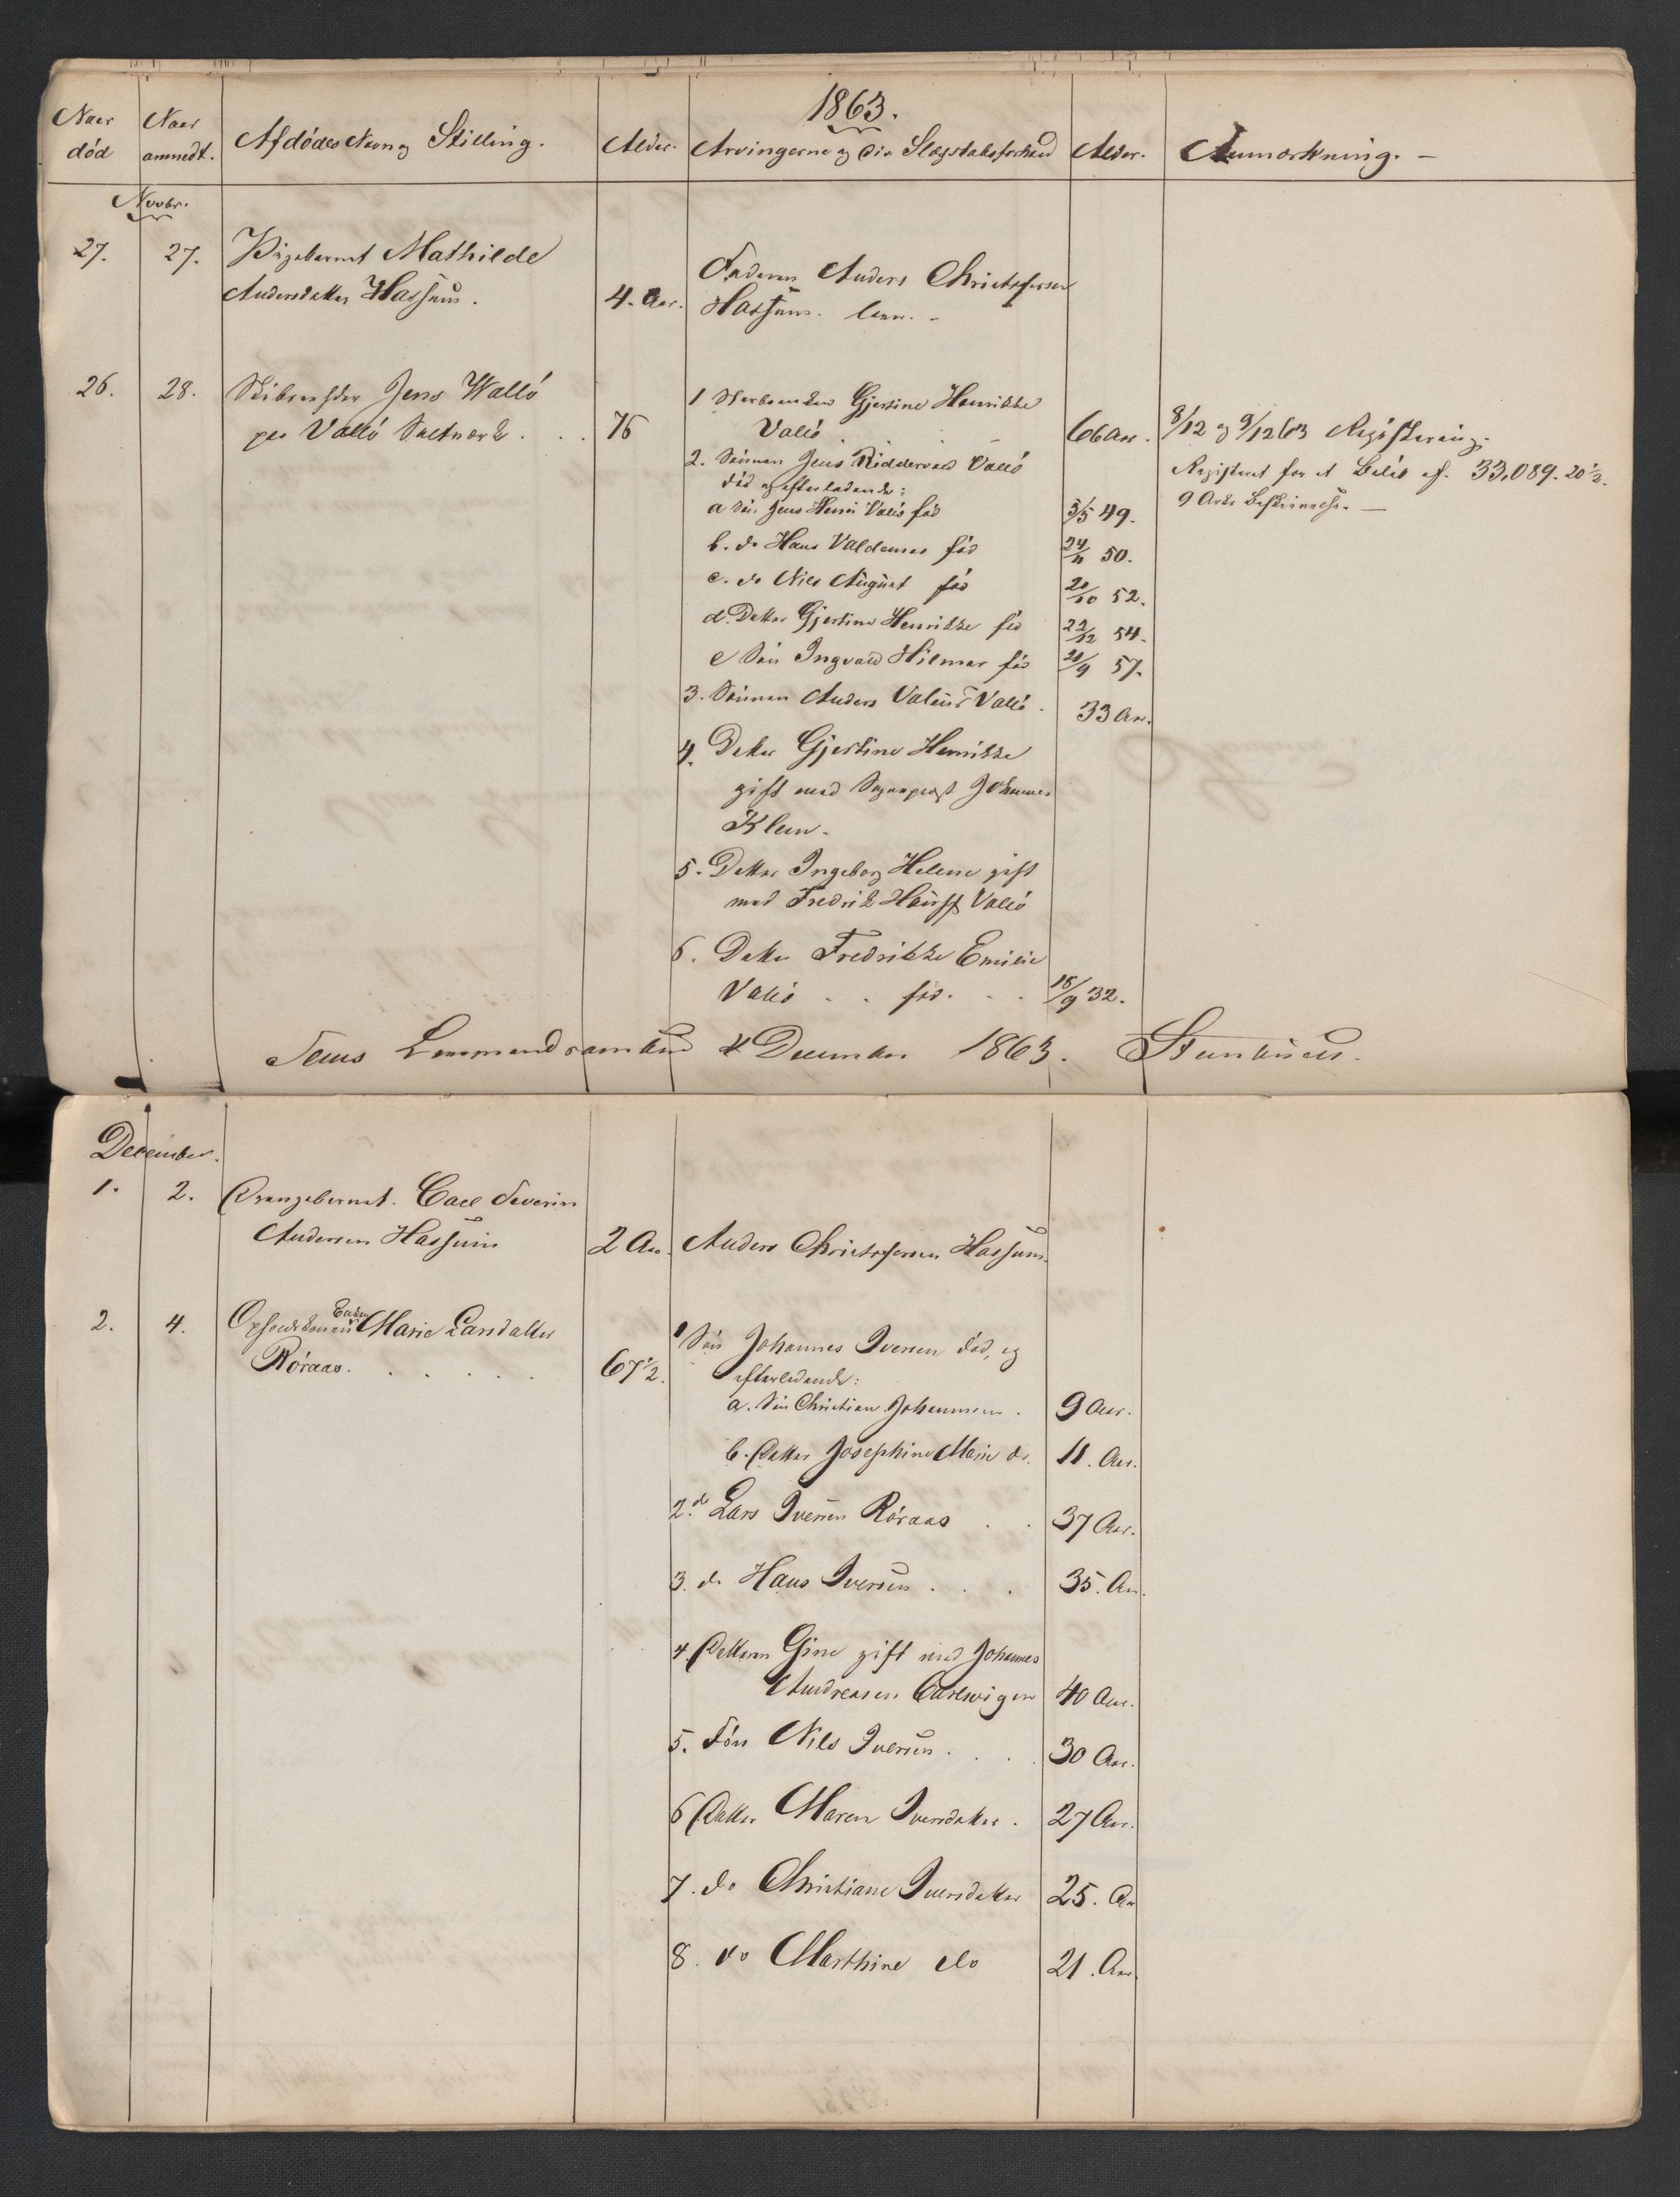 1863.
Naar død
Naar anmedt.
Afdødes Navn og Stilling.
Alder.
Arvingerne og deres Slægtskabsforhold
Alder.
Anmærkning. –
Novbr.
27. 27. Pigebarnet Mathilde
Andersdatter Hassum. 4. Aar.
Faderen Anders Christofersen
Hassum. Leier. –
26. 28. Skibsrheder Jens Walló
paa Valló Saltværk . . . 76
1 Enken Gjertine Henrikke
Valló . . – 66 Aar.
8/12 og 9/12 63 Registrering.
Registeret for et Beløb af 33,089. 20 1/2.
9 Arks Beskrivelse. –
2. Sønnen Jens Riddervold Valló
død og efterladende:
a Søn Jens Henri Valló fød 3/5 49.
b. do Hans Valdemar fød 24/11 50.
c. do Nils August fød 20/10 52.
d. Datter Gjertine Henrikke fød 22/12 54.
e Søn Ingvald Hilmar fød 20/9 57.
3. Sønnen Anders Valeur Valló . 33 Aar.
4. Datter Gjertine Henrikke
gift med Sognepræst Johannes
Klem.
5. Datter Ingeborg Helene gift
med Fredrik Hauff Valló
6. Datter Fredrikke Emilie
Valló . . fød . . . 16/9 32.
Sems Lensmandsombud 4 December 1863.
December.
1. 2. Drengebarnet. Carl Severin
Andersen Hassum 2 Aar. Anders Christofersen Hassum.
2. 4. Enken Marie Larsdatter
Róraas. . . . . . 67 1/2.
1 Søn Johannes Iversen død, og
efterladende:
a. Søn Christian Johannesen . 9 Aar.
b. Datter Josephine Marie do. 11. Aar.
2. do Lars Iversen Róraas . . 37 Aar.
3. do Hans Iversen . . . 35. Aar.
4. Datteren Gine gift med Johannes
Andreasen Carlsvigen 40 Aar.
5. Søn Nils Iversen . . . 30 Aar.
6 Datter Maren Iversdatter . 27 Aar.
7. do Christiane Iversdatter 25. Aar
8. do Marthine do 21. Aar.